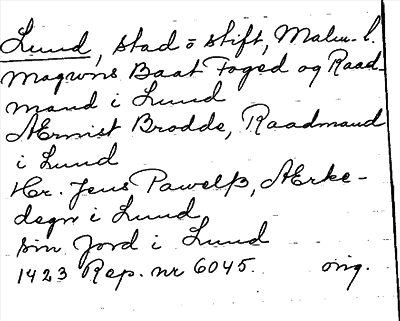 Lund, stad o stift, Malm. l.
Magwns Baat Foged og Raad-
mand i Lund
AErnist Brodde, Raadmand
i Lund
Her. Jens Pawelß, AErke-
degn i Lund
sin Jord i Lund
1423 Rep. nr 6045. orig.